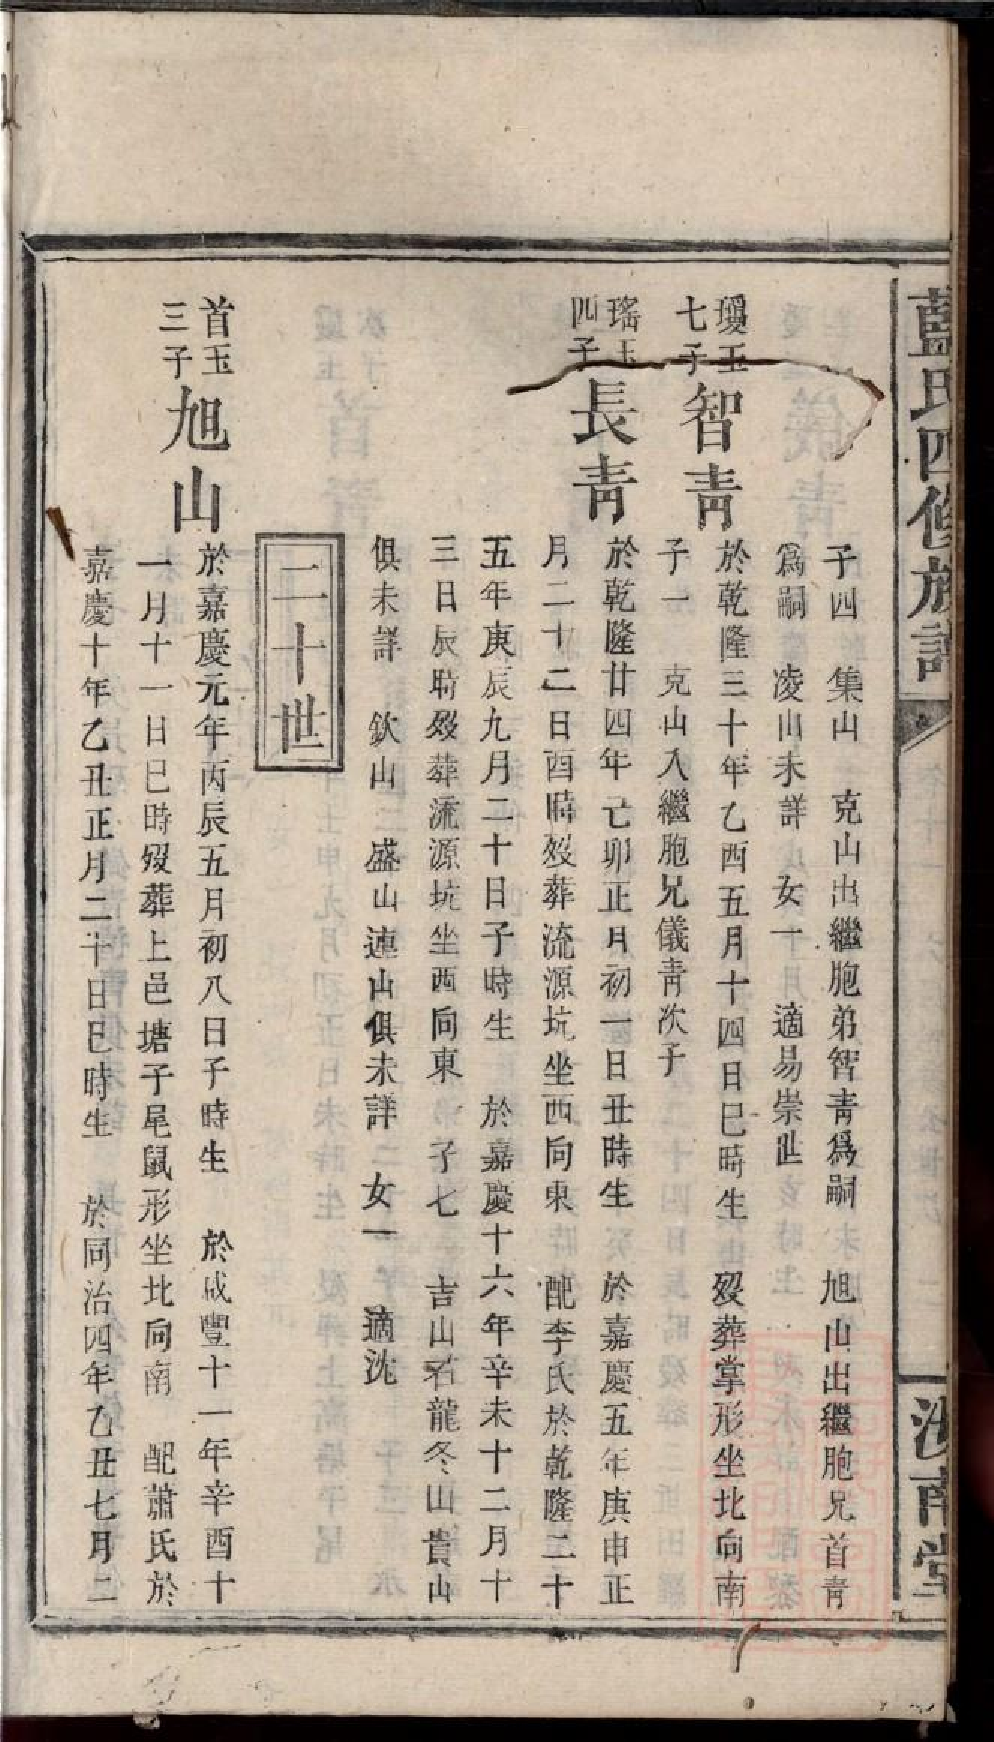 藍氏四修族譜
汝南堂
子四　集山　克山出繼胞弟智青爲嗣　旭山出繼胞兄首青
爲嗣　凌山未詳　女一　適易崇世
瓊玉七子　智青　於乾隆三十年乙酉五月十四日巳時生　歿葬掌形坐北向南
子一　克山入繼胞兄儀青次子
瑤玉四子　長青　於乾隆廿四年亡卯正月初一日丑時生　於嘉慶五年庚申正
月二十二日酉時歿葬流源坑坐西向東　配李氏於乾隆二十
五年庚辰九月二十日子時生　於嘉慶十六年辛未十二月十
三日辰時歿葬流源坑坐西向東　子七　吉山若龍冬山貴山
俱未詳　欽山　盛山連山俱未詳　女一　適沈
二十世
首玉三子　旭山　於嘉慶元年丙辰五月初八日子時生　於咸豐十一年辛酉十
一月十一日巳時歿葬上邑塘子尾鼠形坐北向南　配蕭氏於
嘉慶十年乙丑正月二十日巳時生　於同治四年乙丑七月二